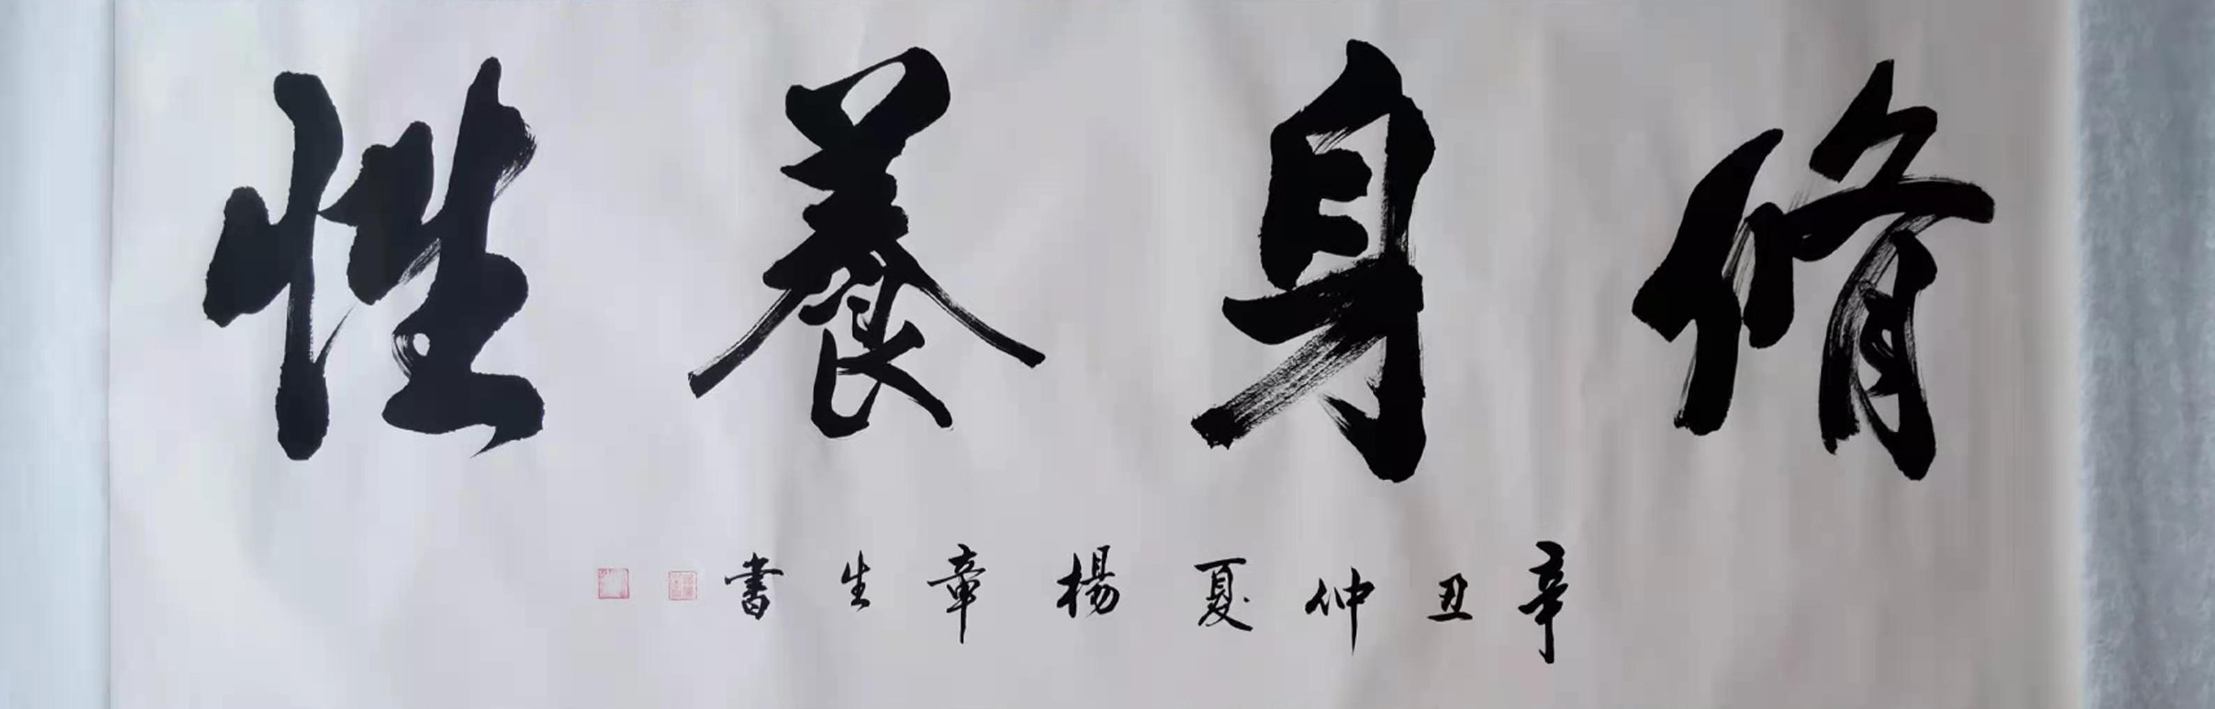 修身養性
辛丑仲夏楊章生書